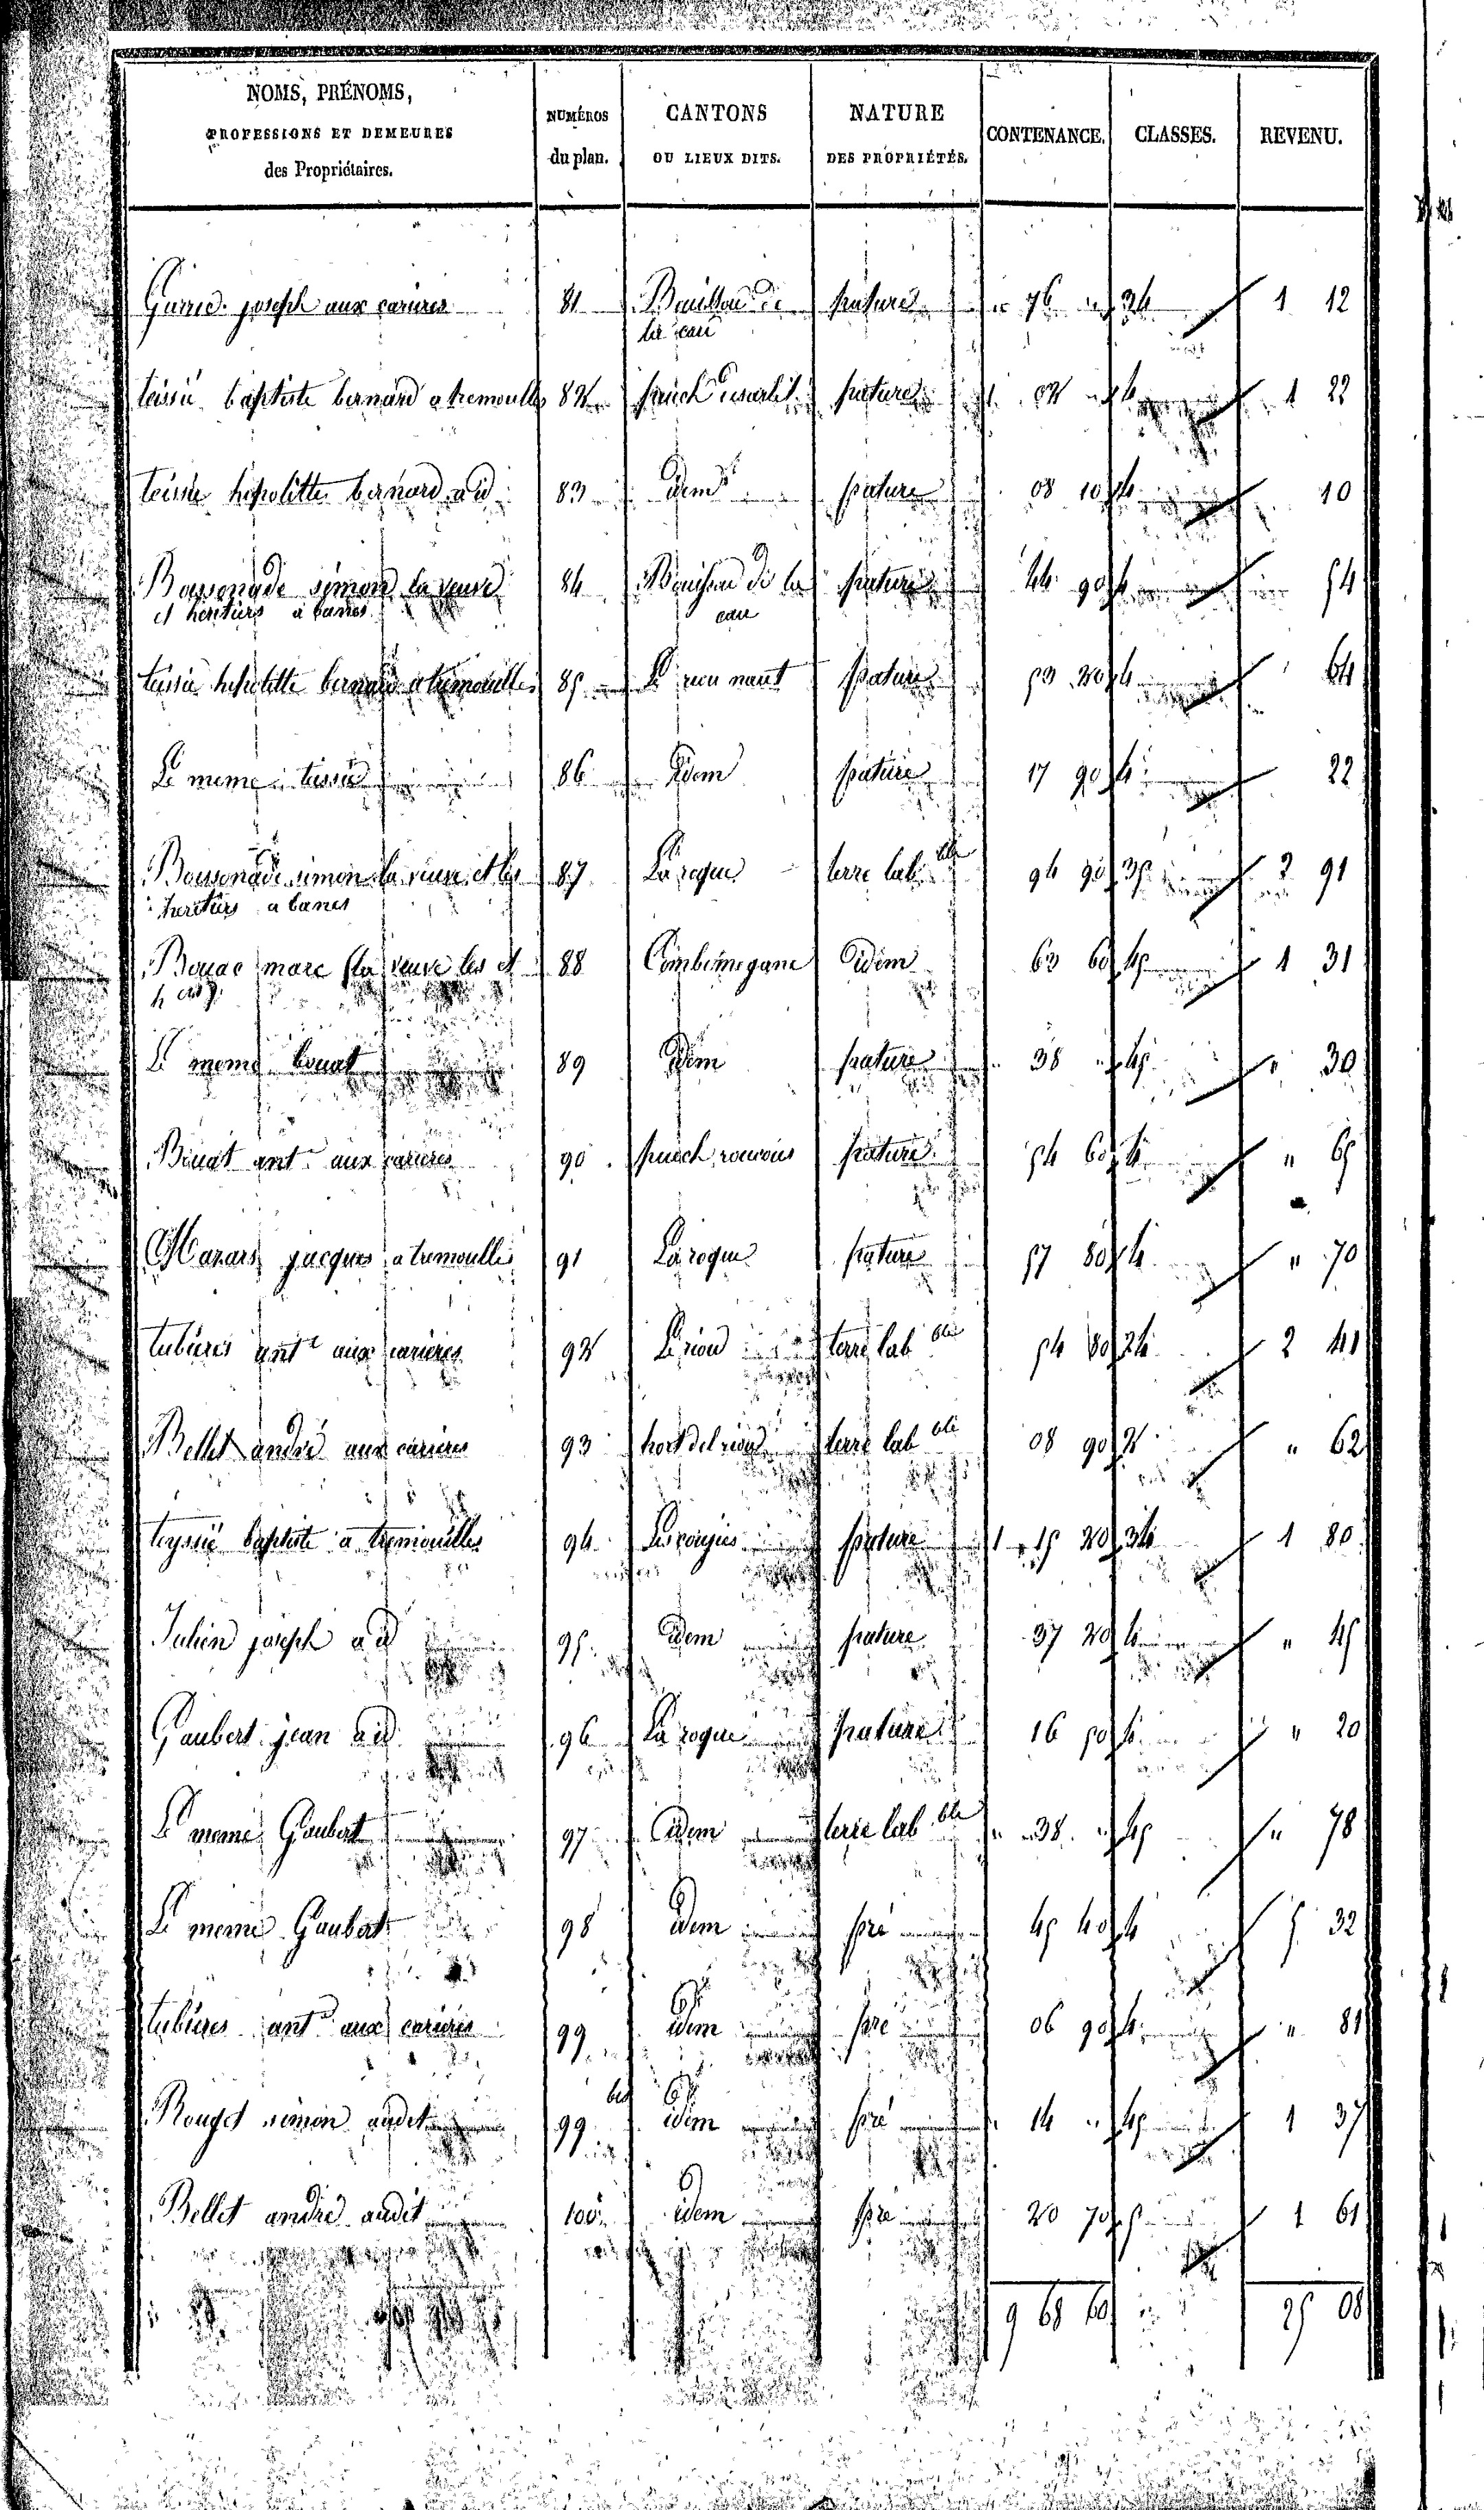 NOMS, PRÉNOMS,
PROFESSIONS ET DEMEURES
des Propriétaires.
NUMÉROS
du plan.
CANTONS
OU LIEUX DITS.
NATURE
DES PROPRIÉTÉS.
CONTENANCE.
CLASSES.
REVENU.
joseph aux carieres 81 de pature " 76 " 34 1 12
la cau
teissié baptiste bernard a tremouilles 82 puech pature 1 02 " 4 1 22
teissie hipolitte bernard a id 83 idem pature 08 10 4 10
Boissonade simon la veuve 84 de la pature 44 90 4 54
et heritiers a banes cau
teissie hipolitte bernard a tremouilles 85 pature 53 20 4 64
Le meme teissié 86 Idem pature 17 90 4 22
Boissonade simon la veuve et les 87 La roque terre lab ble 94 90 35 2 91
heritiers a banes
marc la veuve les et 88 Combemegane idem 63 60 45 1 31
Le meme bouat 89 Idem pature 38 " 45 " 30
Bouat ant aux carieres 90 puech pature 54 60 4 " 65
Mazars jacques a tremouilles 91 La roque pature 57 80 4 " 70
tubieres ant aux carieres 92 Le riou terre lab ble 54 80 24 2 41
Bellet andré aux carieres 93 hort del riou terre lab ble 08 90 2 " 62
teyssié baptiste a tremouilles 94 pature 1 15 20 34 1 80
Julien joseph a id 95 idem pature 37 20 4 " 45
Gaubert jean a id 96 La roque pature 16 50 4 " 20
Le meme Gaubert 97 idem terre lab ble " 38 " 45 " 78
Le meme Gaubert 98 idem pré 45 40 4 5 32
tubieres ant aux carieres 99 idem pré 06 90 4 " 81
Rouget simon audit 99 bis idem pré 14 " 45 1 37
Bellet andré audit 100 idem pré 20 70 5 1 61
9 68 60 25 08